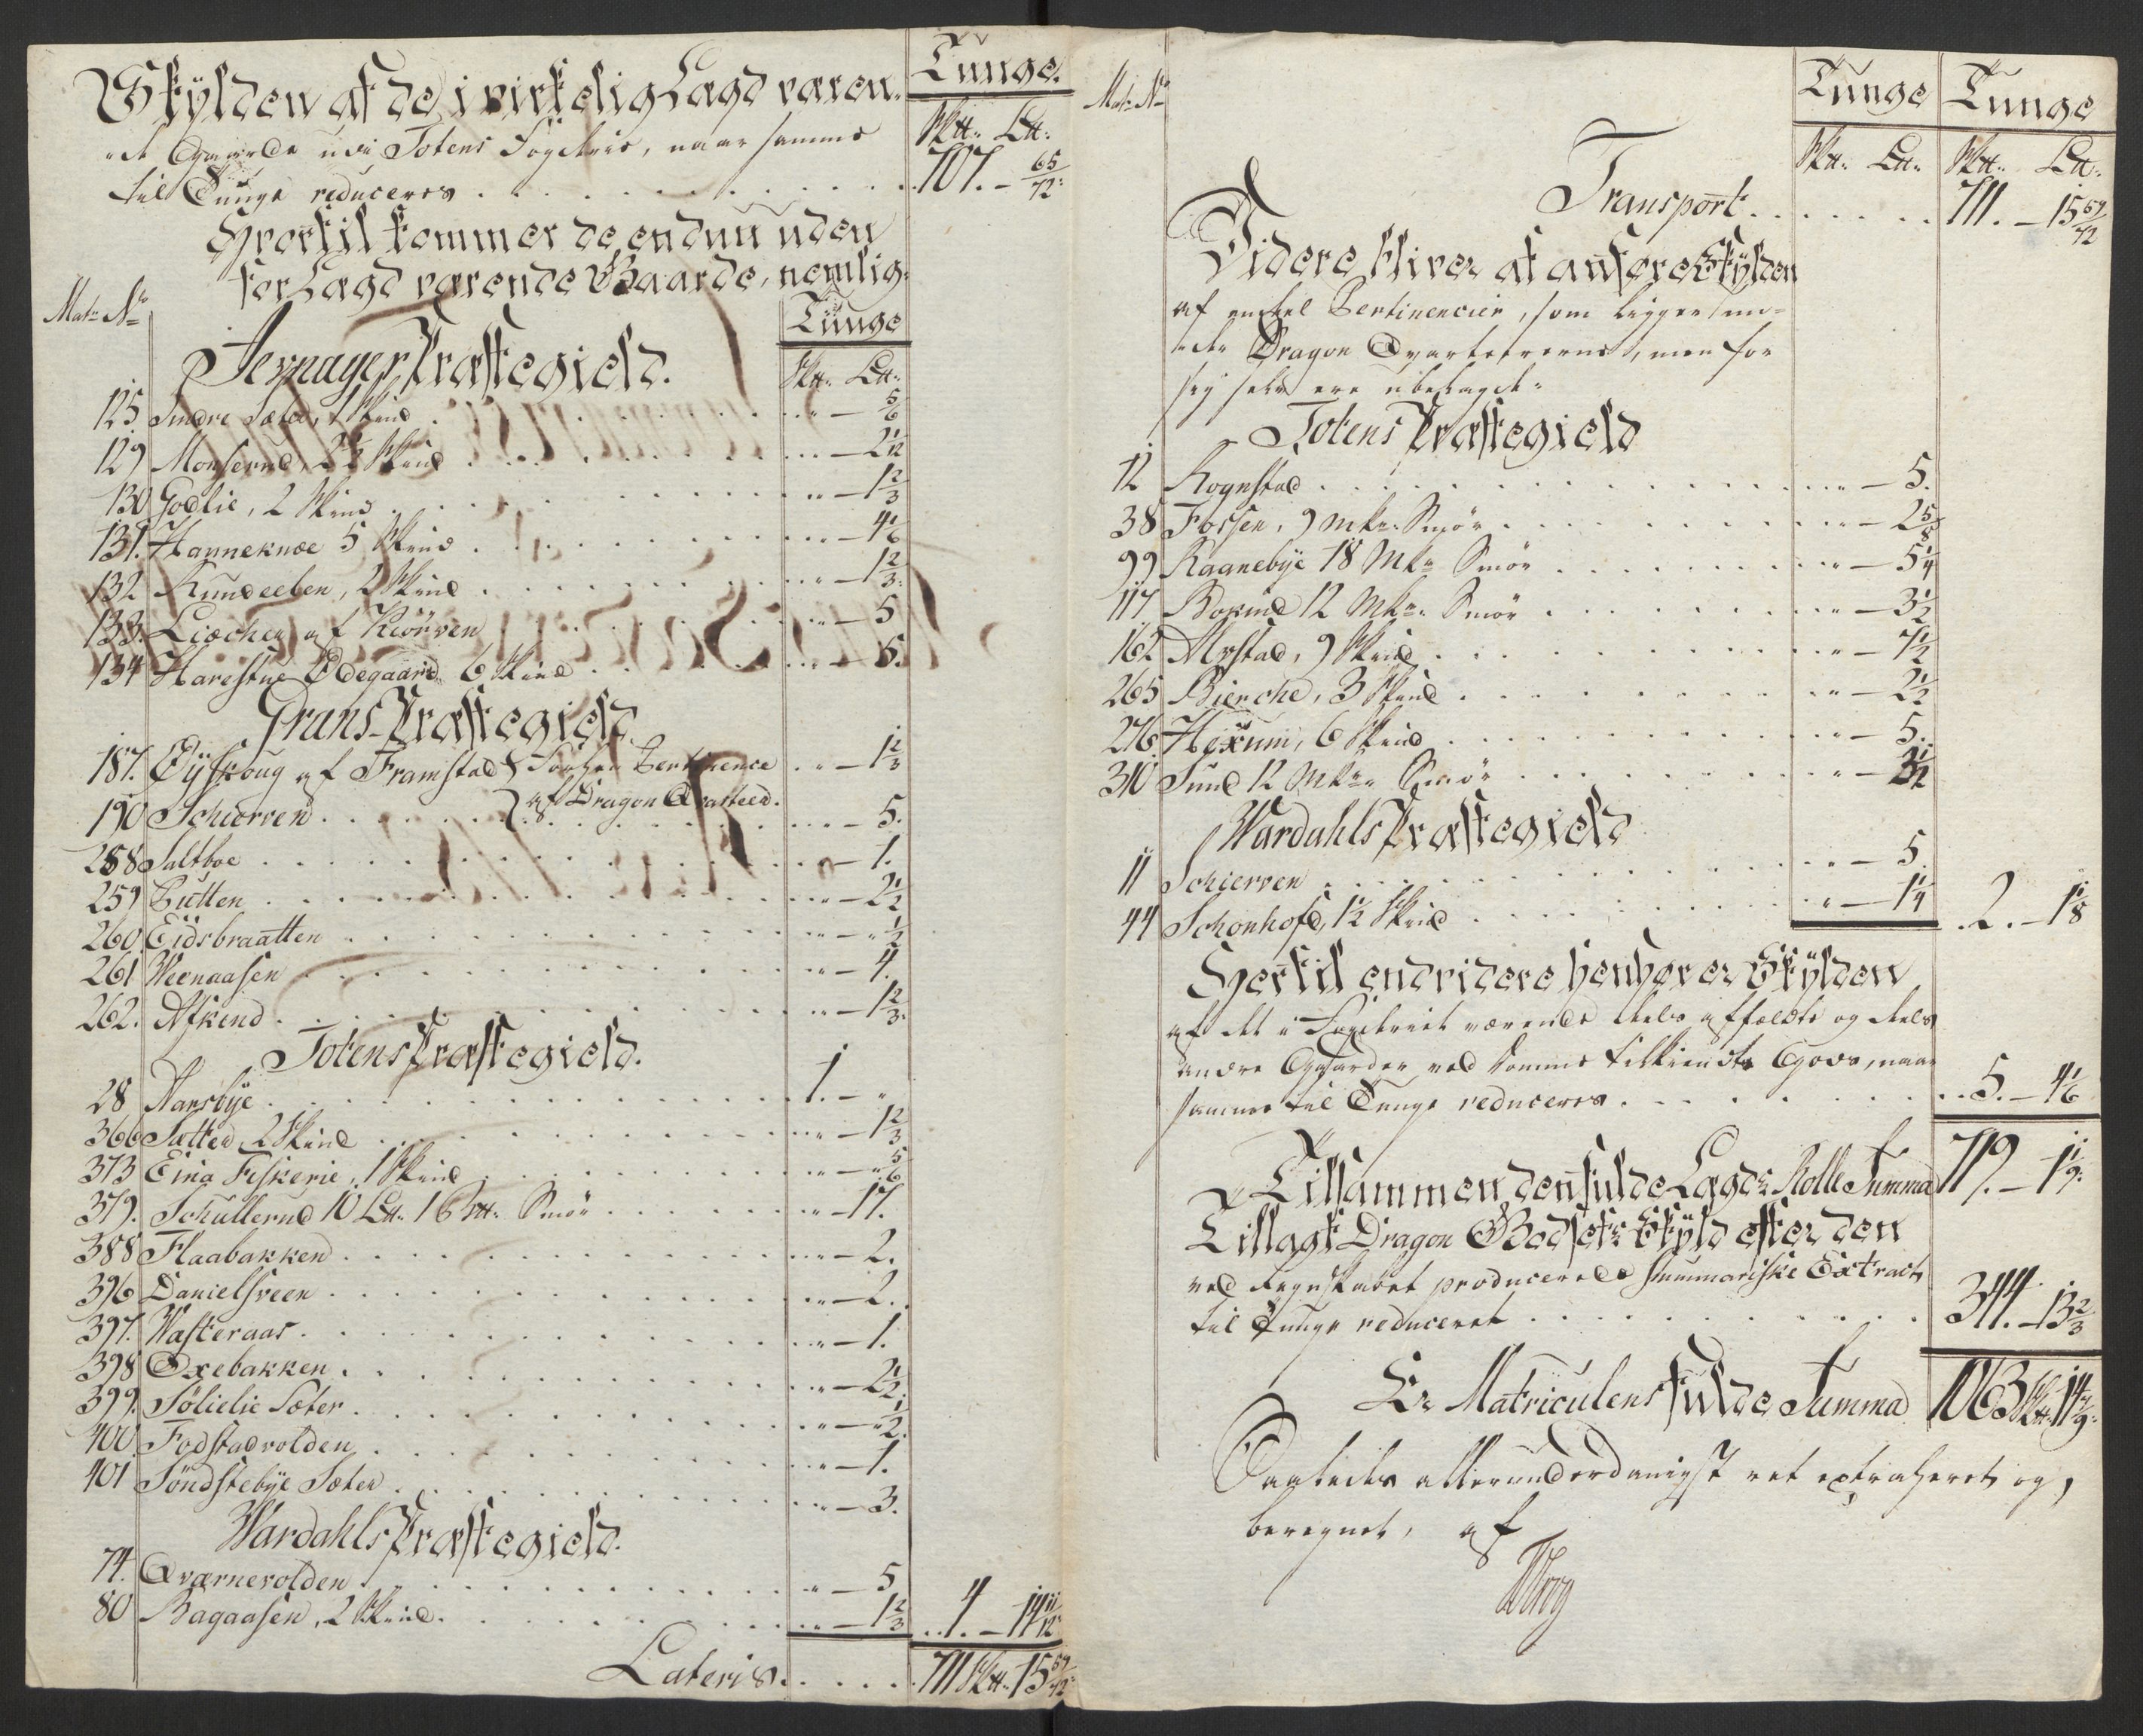 Skylden af de i virkelig Lægd væren-
-de Gaarde udi Totens Fogderie, naar samme
til Tunge reduceres . . . 707. - 65/72
Tunge.
Sktt. Ltt.
Hertil kommer de endnu uden
for Lægd værende Gaarde, nemlig:
Mat: No
Tunge
Jevnager Præstegield.
Sktt. Ltt.
125. Søndre Sæter, 1 Skind . . . " - 5/6
129 Monserud, 2 1/2 Skind . . . " - 2 1/12
130 Godlie, 2 Skind . . . " - 1 2/3
131. Hanneknæ 5 Skind . . . " - 4 1/6
132 Rundeeben, 2 Skind . . . " - 1 2/3
133. Liæchen af Kiörven . . . " - 5
134 Harestue Ödegaard 6 Skind . . . " - 5.
Grans Præstegield.
187. Öÿskoug af Framstad . . . " - 1 2/3
af Dragon Qvarteer.
190 Schiørven . . . " - 5.
258 Saltboe . . . " - 1.
259 Putten . . . " - 2 1/2
260. Eidsbraatten . . . " - " 1/2
261 Weenaasen . . . " - 4.
262. Afkind . . . " - 1 2/3
Totens Præstegield.
28 Aansbÿe . . . 1. - "
366 Sætter, 2 Skind . . . " - 1 2/3
373 Eina Fiskerie, 1 Skind . . . " - " 5/6
379. Schullerud 10 Ltt. 16 mk. Smör . . . " - 17.
388 Flaabakken . . . " - 2.
396 Danielsveen . . . " - 2.
397. Wasteraas . . . " - 1.
398 Oxebakken . . . " - 2 1/2
399. Sølielie Sæter . . . " - " 1/2
400. Fodstadvolden . . . " - 1.
401 Söndstebÿe Sæter . . . " - 3.
Wardahls Præstegield.
74. Qværnevolden . . . " - 5
80 Bagaasen, 2 Skind . . . " - 1 2/3 . . 4. - 14 11/12
Lateris . . . 711 Sktt. 15 59/72
Mat: No
Tunge Tunge
Sktt. Ltt. Sktt. Ltt.
Transport . . . 711. - 15 59/72
Videre bliver at anføre Skylden
af endeel Pertinencier, som ligger un-
-der Dragon Qvarteererne, men for
sig selv ere ubelagde.
Totens Præstegield
12 Rognstad . . . " - 5.
38 Fossen, 9 mkr. Smör . . . " - 2 5/8
99 Raanebÿe 18 Mkr. Smör . . . " - 5 1/4
117 Borind 12 Mkr. Smör . . . " - 3 1/2
162 Alfstad, 9 Skind . . . " - 7 1/2
265 Bierche, 3 Skind . . . " - 2 1/2
276. Hexum, 6 Skind . . . " - 5.
310 Sund 12 Mkr. Smör . . . " - 3 1/2
Wardahls Præstegield
11 Schierven . . . " - 5.
44 Schonhofd, 1 1/2 Skind . . . " - 1 1/4 . 2. - 1 1/8
Hertil endvidere henhører Skylden
af det i Fogderiet værende deels affældte og deels
andre Gaarder ved Domme tilkiendte Gods, naar
samme til Tunge reduceres . . . 5. - 4 1/6
Tilsammen den fulde Lægds Rolle Summa 719. - 1 1/9.
Tillagt Dragon Godsets Skyld efter den
ved Regnskabet producerede Summariske Extract
til Tunge reduceret . . . 344. - 13 2/3
Er Matriculens fulde Summa 1063 Sktt. 14 7/9.
Saaledes allerunderdanigst ret extraheret og
beregnet, af